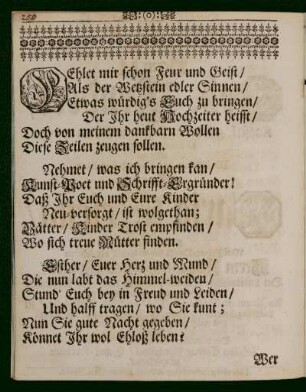 :(o):
Fehlet mir schon Feur und Geist/
Als der Wetzstein edler Sinnen/
Etwas würdig's Euch zu bringen/
Der Ihr heut Hochzeiter heisst/
Doch von meinem danckbarn Wollen
Diese Zeilen zeugen sollen.
Nehmet/ was ich bringen kan/
Kunst-Poet und Schrifft-Ergründer!
Daß Ihr Euch und Eure Kinder
Neu versorgt/ ist wolgethan;
Vätter/ Kinder Trost empfinden/
Wo sich treue Mütter finden.
Esther/ Euer Hertz und Mund/
Die nun labt das Himmel-weiden/
Stund' Euch bey in Freud und Leiden/
Und halff tragen/ wo Sie kunt;
Nun Sie gute Nacht gegeben/
Könnet Ihr wol Ehloß leben?
Wer